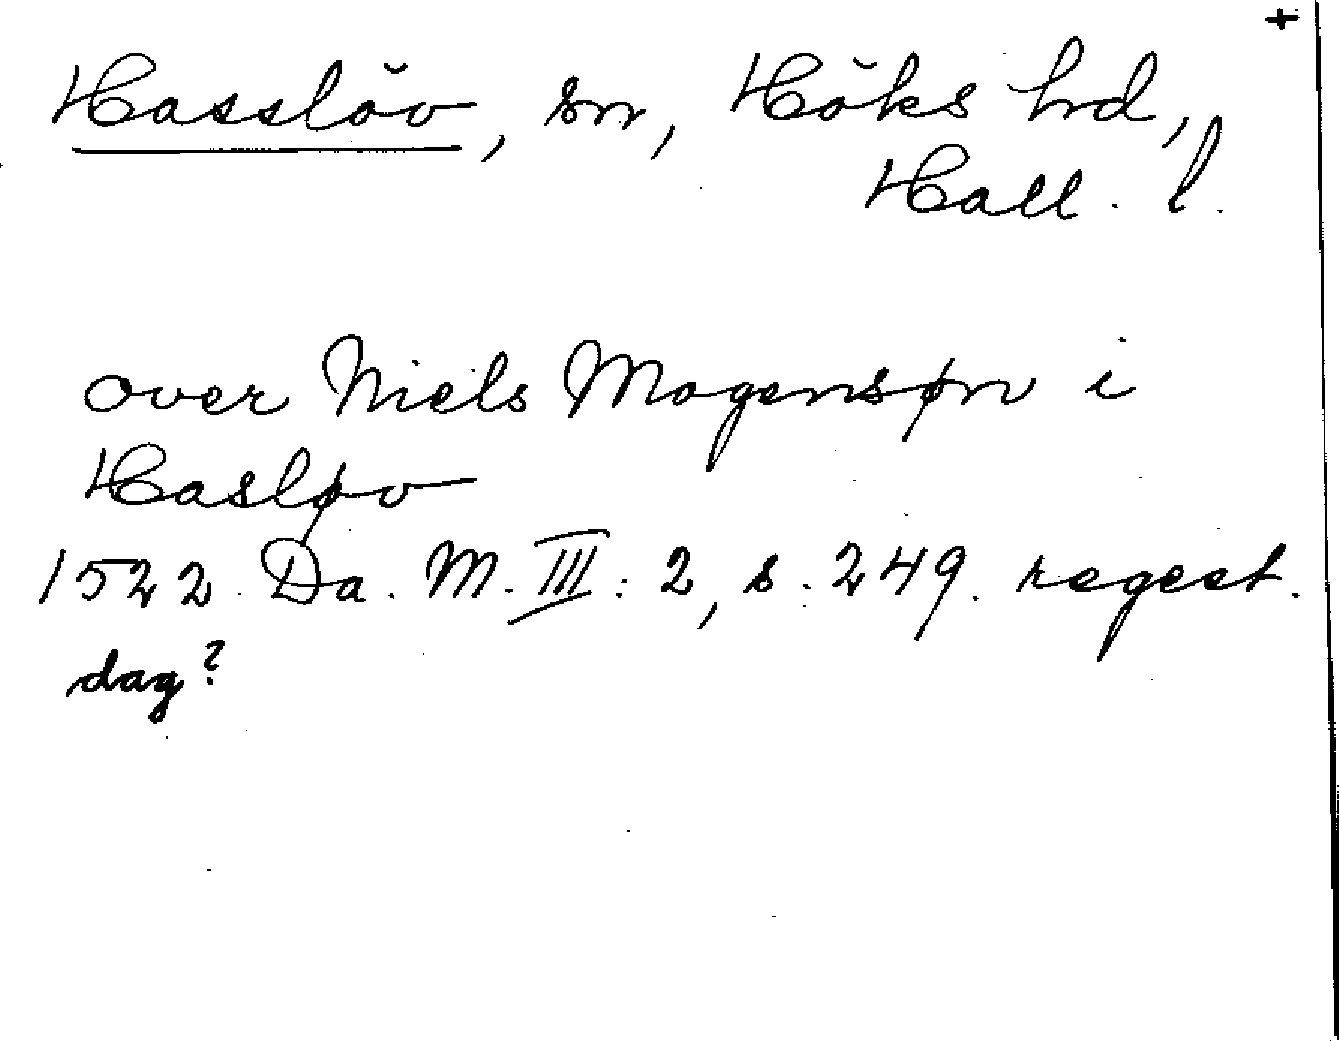 +
Hasslöv, sn, Höks hrd,
Hall. l.
over Niels Mogensøn i
Hasløv
1522 Da. M. III: 2, s. 249. regest.
dag?